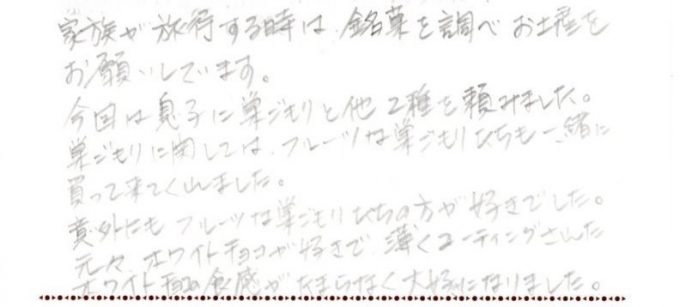 家族が旅行する時は、銘菓を調べお土産を
お願いしています。
今回は息子に巣ごもりと他2種を頼みました。
巣ごもりに関しては、フルーツな巣ごもりひちも一緒に
買って来てくれました。
意外にもフルーツな巣ごもりひちの方が好きでした。
元々、ホワイトチョコが好きで、薄くコーティングされた
ホワイトチョコの食感がたまらなく大好きになりました。